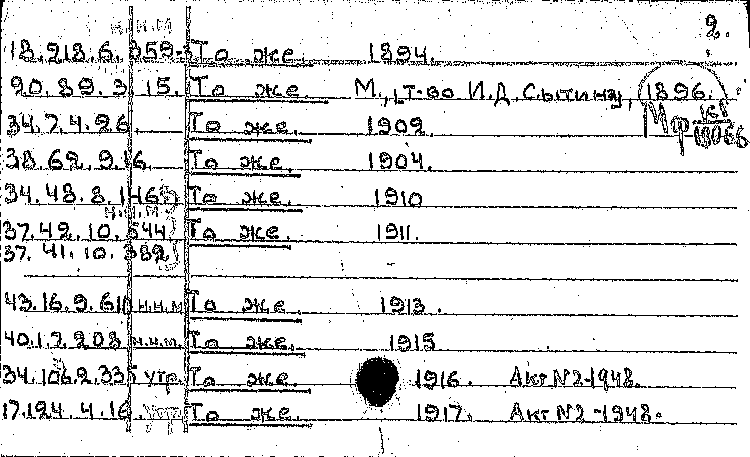 2.
н.н.м
18.218.6.359- То же. 1894.
20.89.3.15. То же. М., т-во И.Д. Сытина, 1896.
34.7.4.26. То же. 1902. Мф 161/18066
38.62.9.16. То же. 1904.
34.48.8.1465 То же. 1910
н.н.м
37.42.10.544 То же. 1911.
37.41.10.382
43.16.9.610 н.н.м То же. 1913.
40.17.208 н.н.м. То же. 1915
34.106.2.335 утр. То же. 1916. Акт N2-1948.
17.124.4.16. утр То же. 1917. Акт N2-1948.